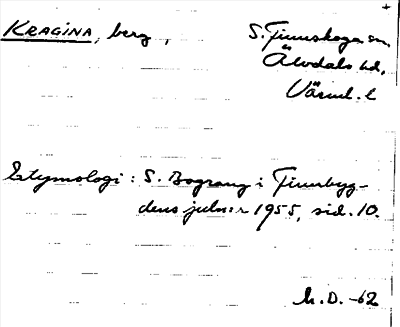 KRAGINA, berg,
S. Finnskoga sn.
Älvdals hd,
Värml. l
Etymologi: S. Bograng i Finnbyg-
dens juln:r 1955, sid. 10.
M.D. -62